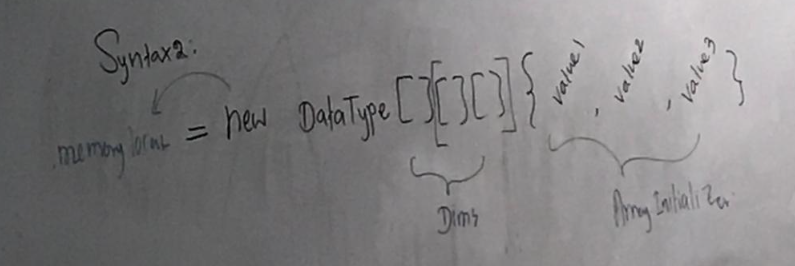 Syntax2:
memory locat = new DataType [ ][[ ][ ]] { value1 , value2 , value3 }
Dims
Array Initializer.